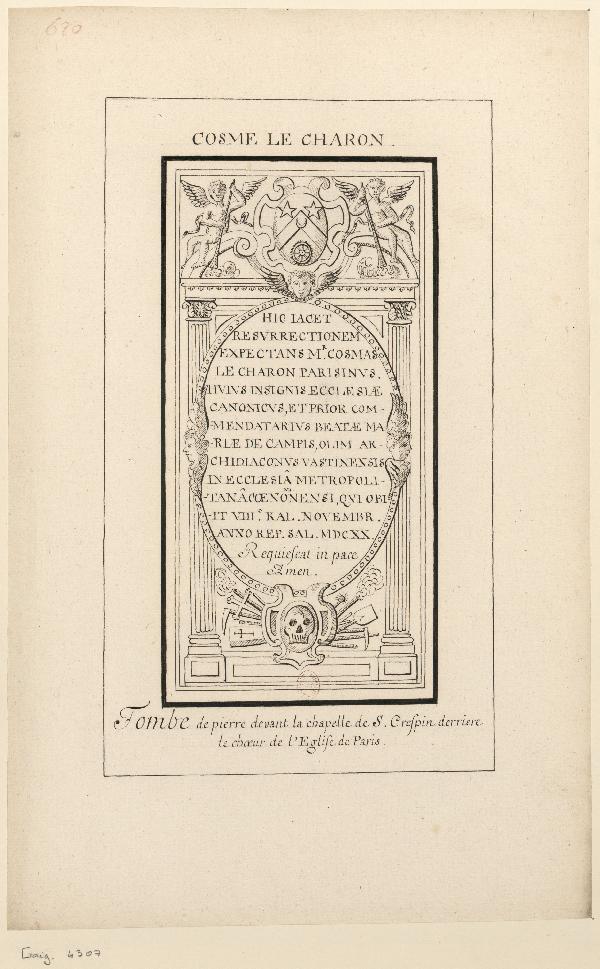 690
COSME LE CHARON.
HIC IACET
RESVRRECTIONEM
EXPECTANS Mr. COSMAS
LE CHARON PARISINVS.
HVIVS INSIGNIS ECCLESIÆ
CANONICVS, ET PRIOR COM-
-MENDATARIVS BEATÆ MA
-RIÆ DE CAMPIS, OLIM AR-
-CHIDIACONVS VASTINENSIS
IN ECCLESIÂ METROPOLI-
-TANÂ SENONENSI, QVI OBI
-IT VIII. KAL. NOVEMBR.
ANNO REP. SAL. MDCXX.
Requiescat in pace
Amen.
Tombe de pierre devant la chapelle de S. Crespin derriere
le chœur de l'Eglise de Paris.
Gaig. 4307